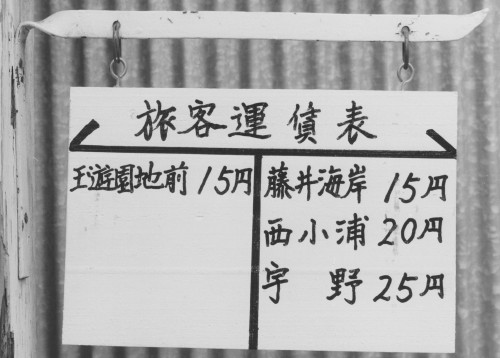 旅客運賃表
王遊園地前 15円
藤井海岸 15円
西小浦 20円
宇野 25円